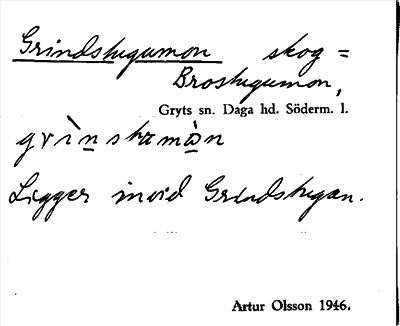 Grindstugumon skog =
Brostugumon,
Gryts sn. Daga hd. Söderm. l.
grìnstœmòn
Ligger invid Grindstugan.
Artur Olsson 1946.